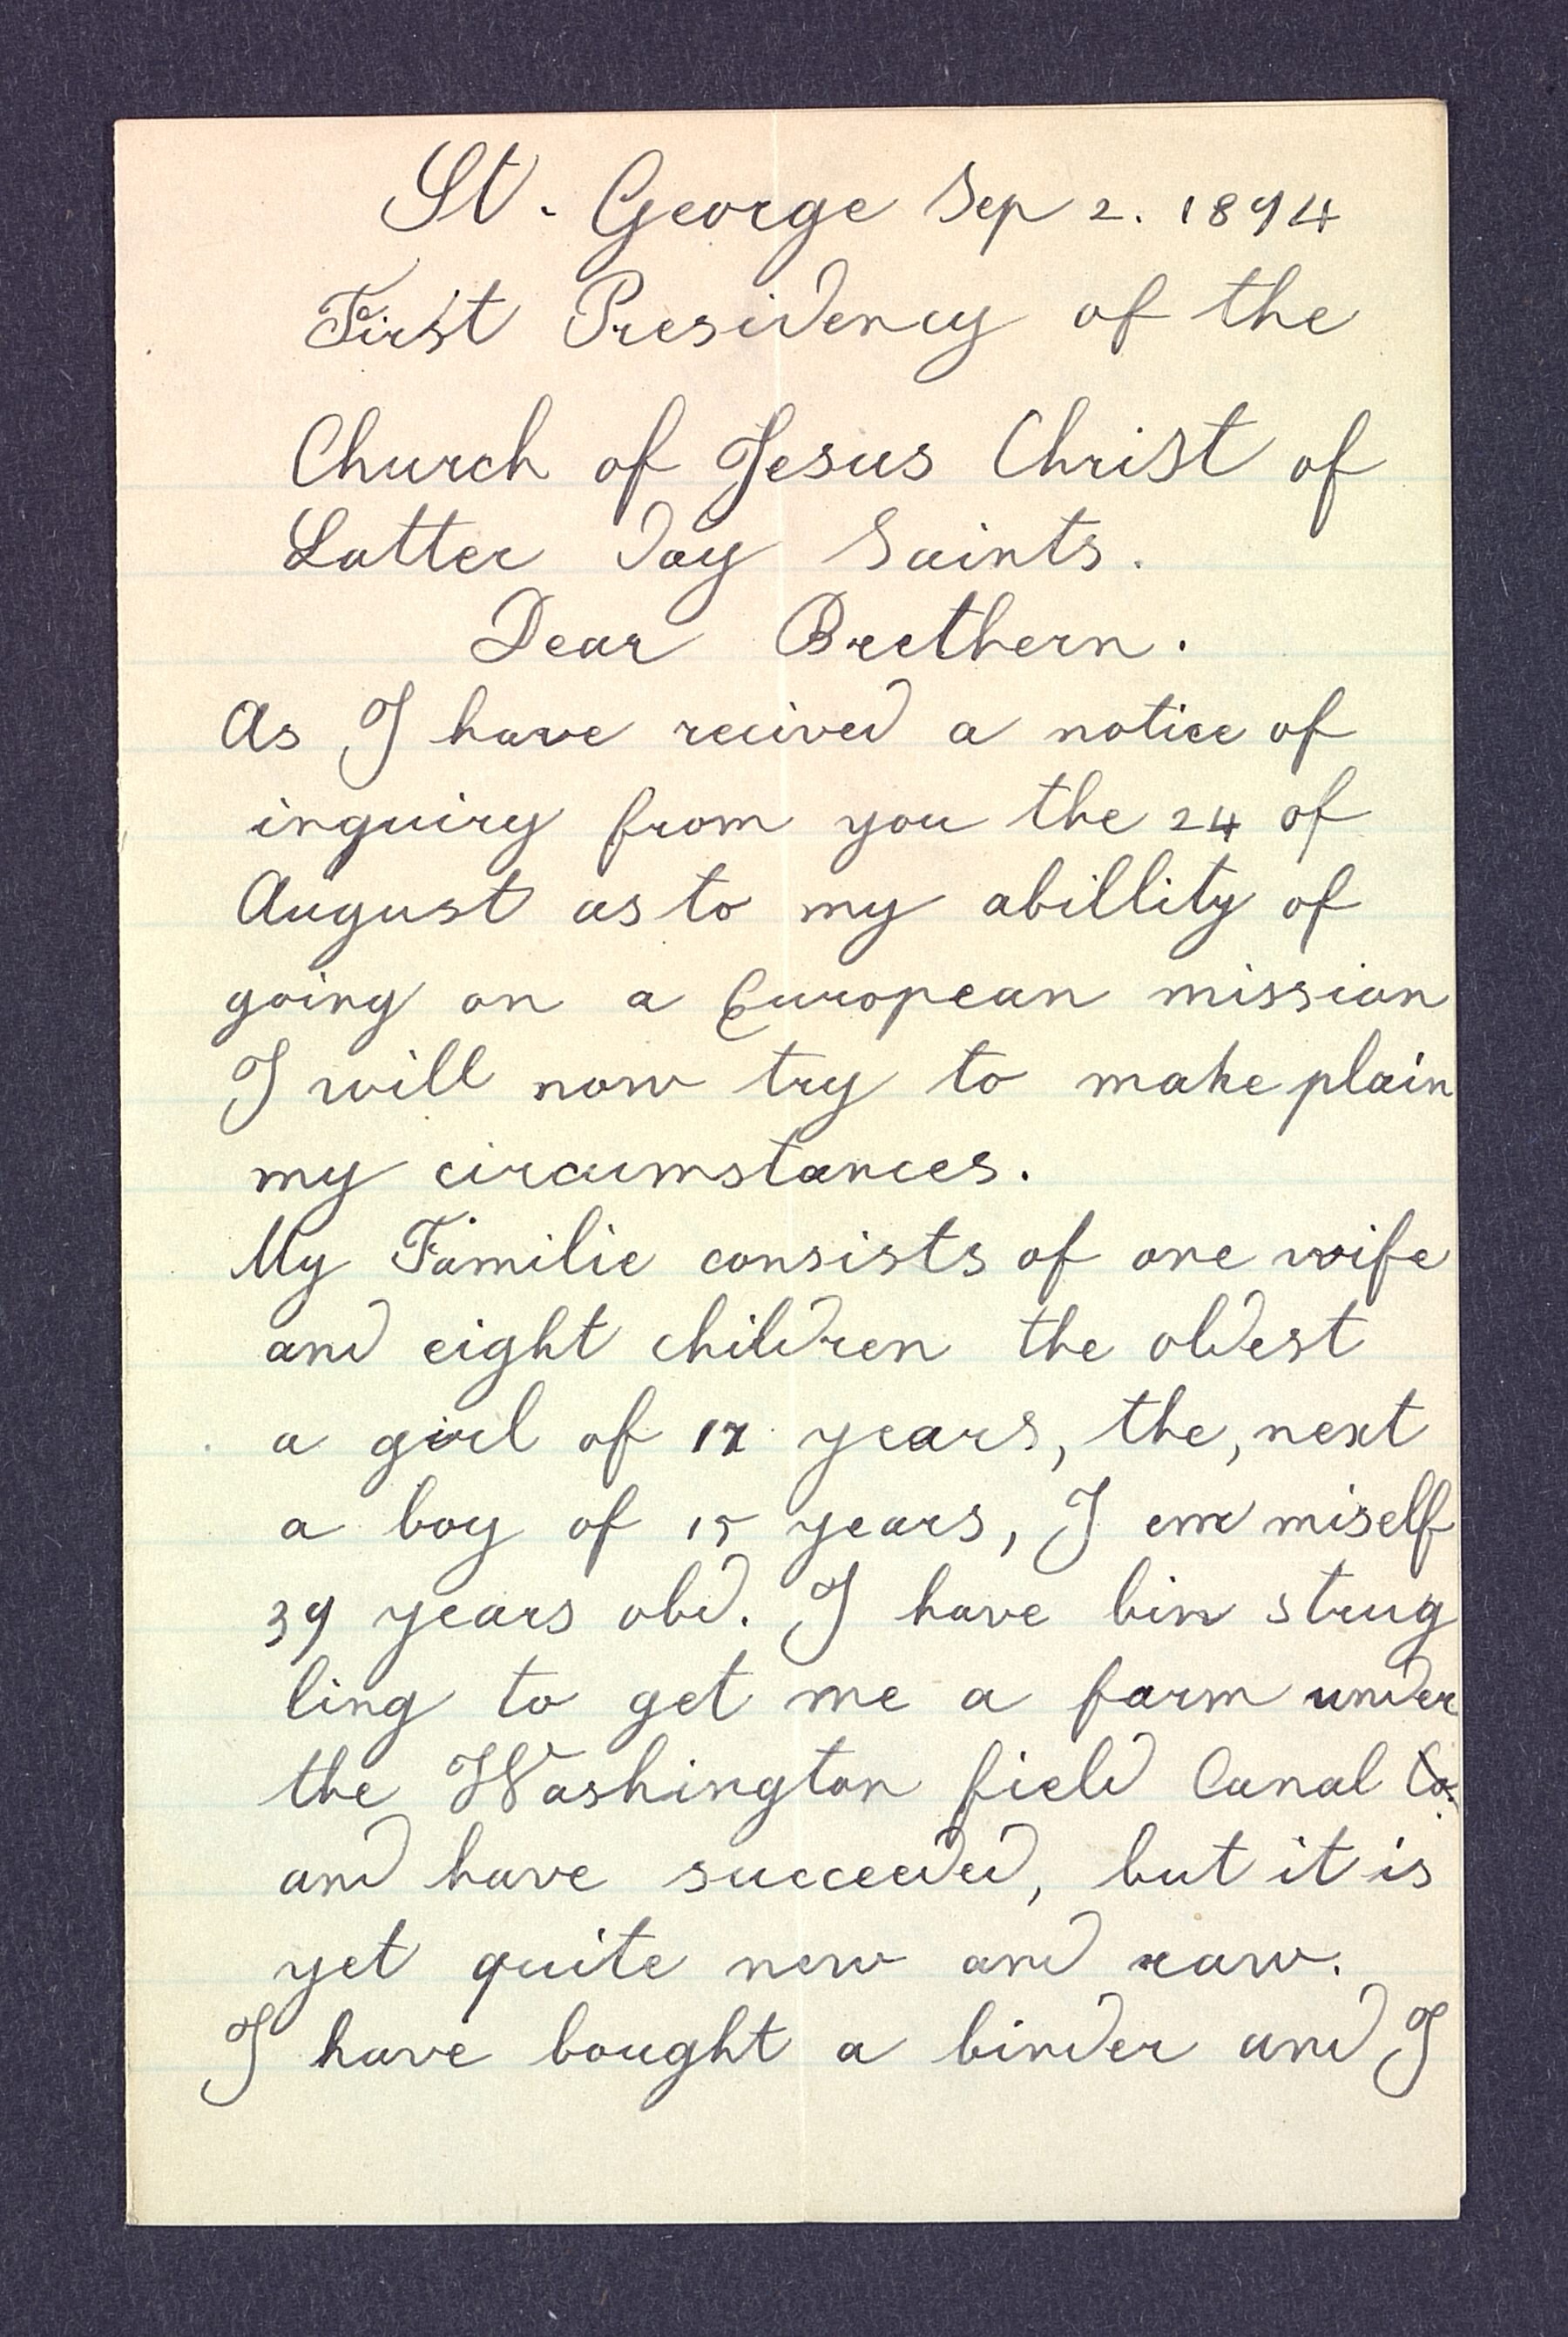 St. George Sep 2. 1894
First Presidency of the
Church of Jesus Christ of
Latter Day Saints.
Dear Brethern.
As I have recived a notice of
inquiry from you the 24 of
August as to my abillity of
going on a European mission
I will now try to make plain
my circumstances.
My Familie consists of one wife
and eight children the oldest
a girl of 17 years, the, next
a boy of 15 years, I em miself
39 years old. I have bin strug
ling to get me a farm under
the Washington field Canal Co.
and have succeeded, but it is
yet quite new and raw.
I have bought a binder and I